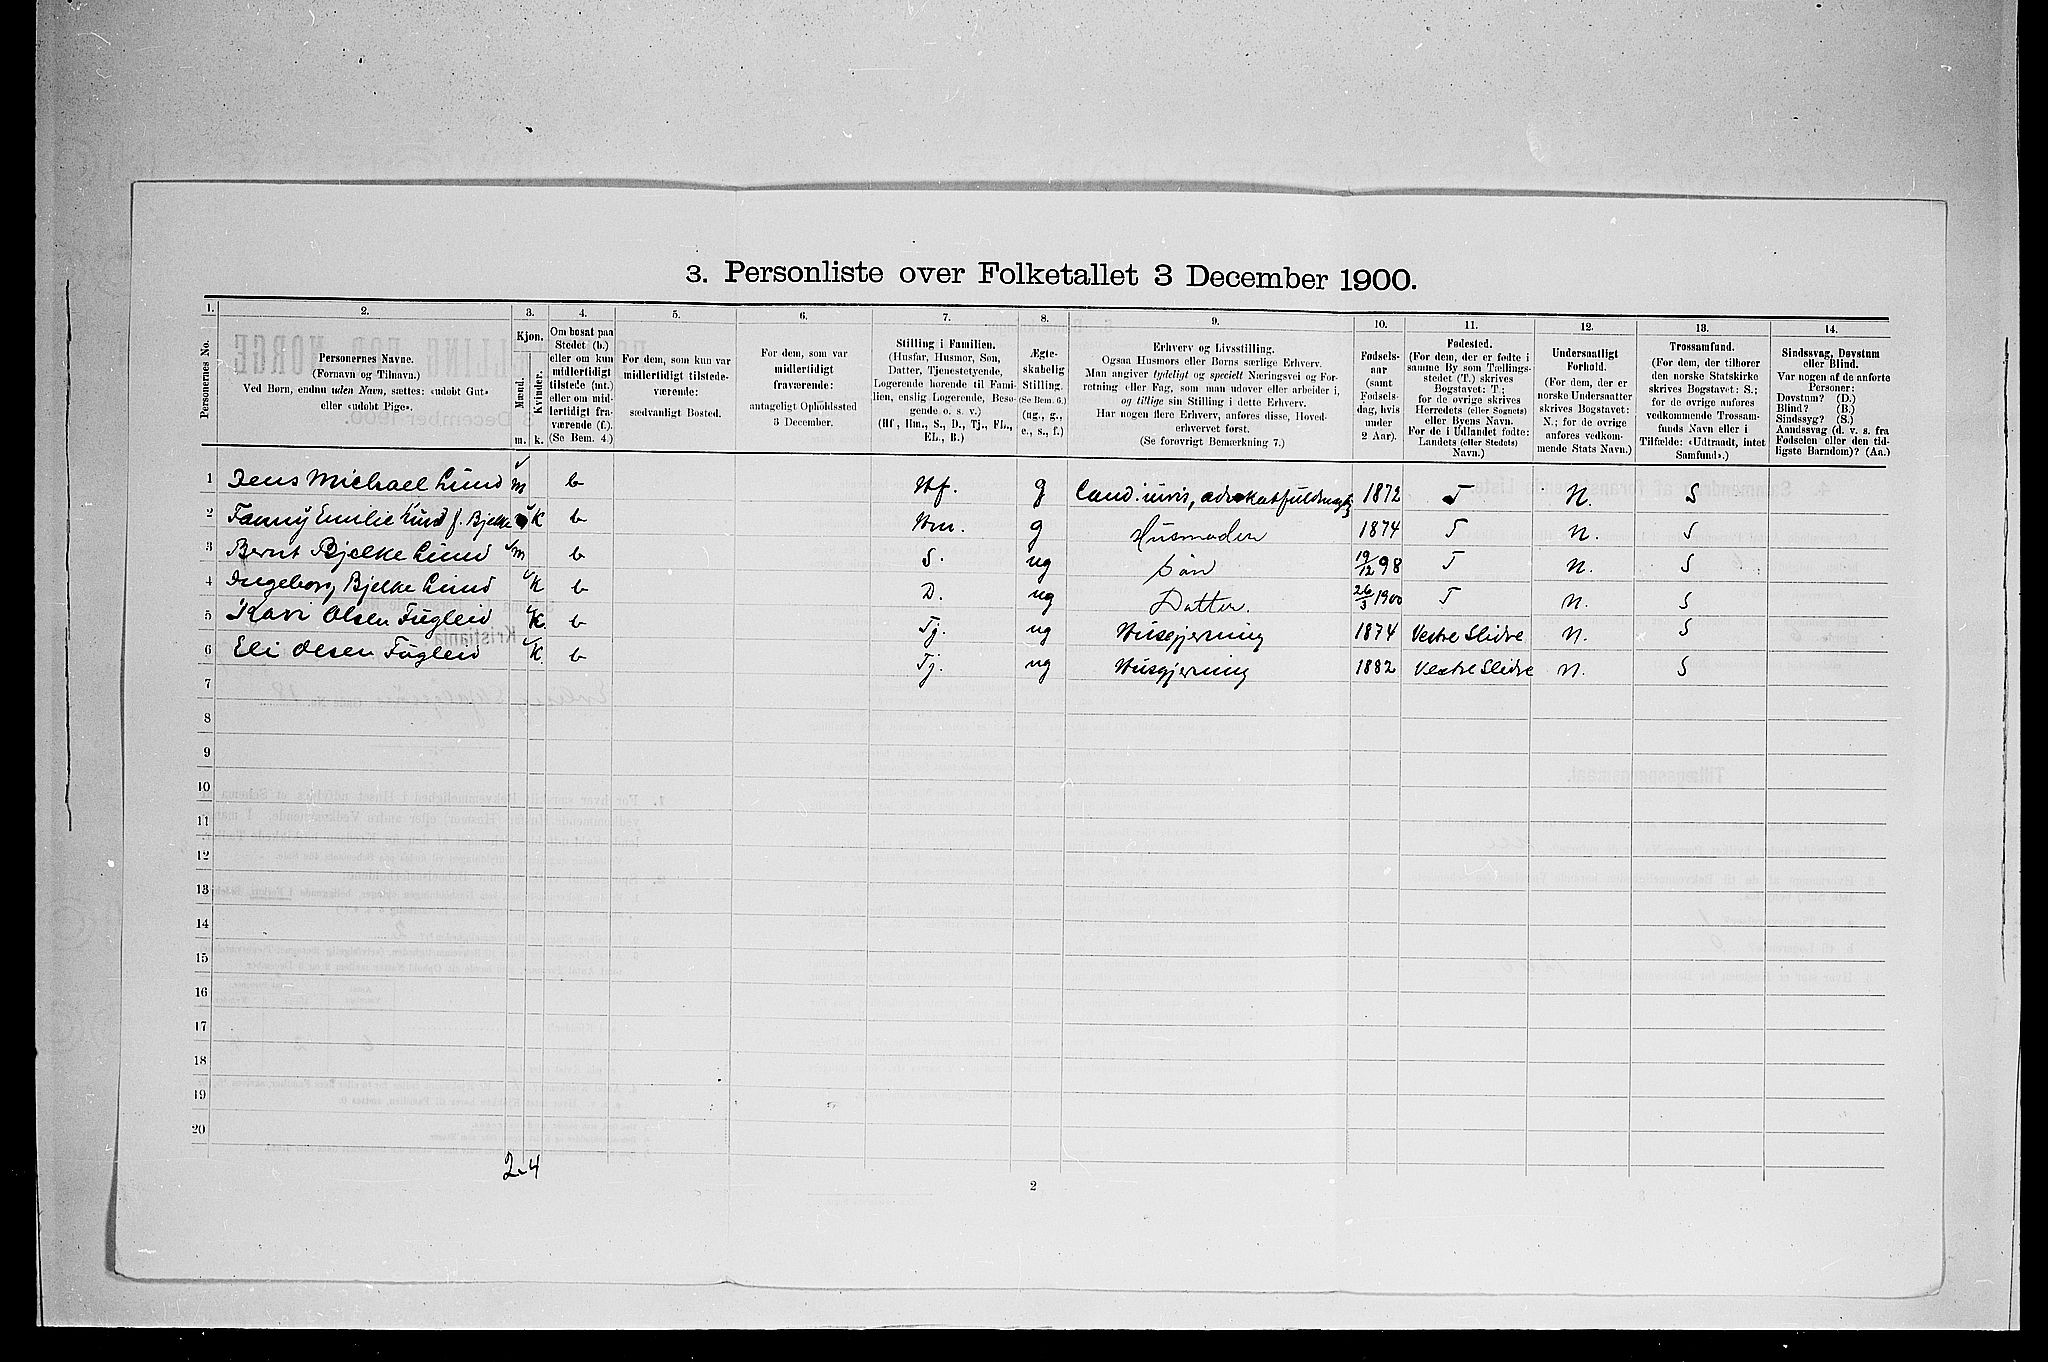 3. Personliste over Folketallet 3 December 1900.
1. 2. 3. 4. 5. 6. 7. 8. 9. 10. 11. 12. 13. 14.
Personernes No.
Personernes Navne.
(Fornavn og Tilnavn.)
Ved Børn, endnu uden Navn, sættes: «udøbt Gut»
eller «udøbt Pige».
Kjøn.
Mænd.
Kvinder.
m. k.
Om bosat paa
Stedet (b.)
eller om kun
midlertidigt
tilstede (mt.)
eller om mid-
lertidigt fra-
værende (f.).
(Se Bem. 4.)
For dem, som kun var
midlertidigt tilstede-
værende:
sædvanligt Bosted.
For dem, som var
midlertidigt
fraværende:
antageligt Opholdssted
3 December.
Stilling i Familien.
(Husfar, Husmor, Søn,
Datter, Tjenestetyende,
Logerende hørende til Fami-
lien, enslig Logerende, Besø-
gende o. s. v.)
(Hf., Hm., S., D., Tj., FL.,
EL., B.)
Ægte-
skabelig
Stilling.
(Se Bem. 6.)
(ug., g.,
e., s., f.)
Erhverv og Livsstilling.
Ogsaa Husmors eller Børns særlige Erhverv.
Man angiver tydeligt og specielt Næringsvei og For-
retning eller Fag, som man udøver eller arbeider i,
og tillige sin Stilling i dette Erhverv.
Har nogen flere Erhverv, anføres disse, Hoved-
erhvervet først.
(Se forøvrigt Bemærkning 7.)
Fødsels-
aar
(samt
Fødsels-
dag, hvis
under
2 Aar).
Fødested.
(For dem, der er fødte i
samme By som Tællings-
stedet (T.) skrives
Bogstavet: T;
for de øvrige skrives
Herredets (eller Sognets)
eller Byens Navn.
For de i Udlandet fødte:
Landets (eller Stedets)
Navn.)
Undersaatligt
Forhold.
(For dem, der er
norske Undersaatter
skrives Bogstavet:
N.; for de øvrige
anføres vedkom-
mende Stats Navn.)
Trossamfund.
(For dem, der tilhører
den norske Statskirke
skrives Bogstavet: S.;
for de øvrige anføres
vedkommende Trossam-
funds Navn eller i
Tilfælde: «Udtraadt, intet
Samfund».)
Sindssvag, Døvstum
eller Blind.
Var nogen af de anførte
Personer:
Døvstum? (D.)
Blind? (B.)
Sindssyg? (S.)
Aandssvag (d. v. s. fra
Fødselen eller den tid-
ligste Barndom)? (Aa.)
1 Jens Michael Lund m b Hf. g Cand. juris, advokatfuldmægtig 1872 T N. S
2 Fanny Emilie Lund f. Bjelke K b Hm. g Husmoder 1874 T N. S
3 Bernt Bjelke Lund m b S. ug Søn 19/12 98 T N. S
4 Ingeborg Bjelke Lund K b D. ug Datter. 26/3 1900 T N. S
5 Kari Olsen Fugleid K. b Tj. ug Husgjerning 1874 Vestre Slidre N. S
6 Eli Olsen Fugleid K. b Tj. ug Husgjerning 1882 Vestre Slidre N. S
7
8
9
10
11
12
13
14
15
16
17
18
19
20
2-4
2